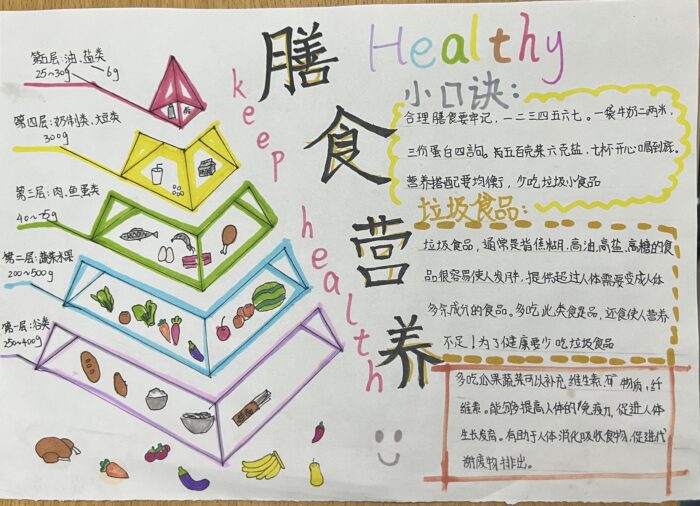 Healthy
keep health
膳食营养
第五层:油、盐类
25~30g 6g
第四层:奶制类、大豆类
300g
第三层:肉、鱼蛋类
40~75g
第二层:蔬菜水果
200~500g
第一层:谷类
250~400g
小口诀:
合理膳食要牢记,一二三四五六七。一袋牛奶二两米,
三份蛋白四言句。 五百克菜六克盐,七杯开心喝到底。
营养搭配要均衡,少吃垃圾小食品
垃圾食品:
垃圾食品,通常是指 高油,高盐,高糖的食
品很容易使人发胖,提供超过人体需要变成人体
多余成分的食品。多吃此类食品,还会使人营养
不足!为了健康要少吃垃圾食品
多吃瓜果蔬菜可以补充维生素,矿物质,纤
维素。能够提高人体的免疫力,促进人体
生长发育。有助于人体消化吸收食物,促进代
谢废物排出。